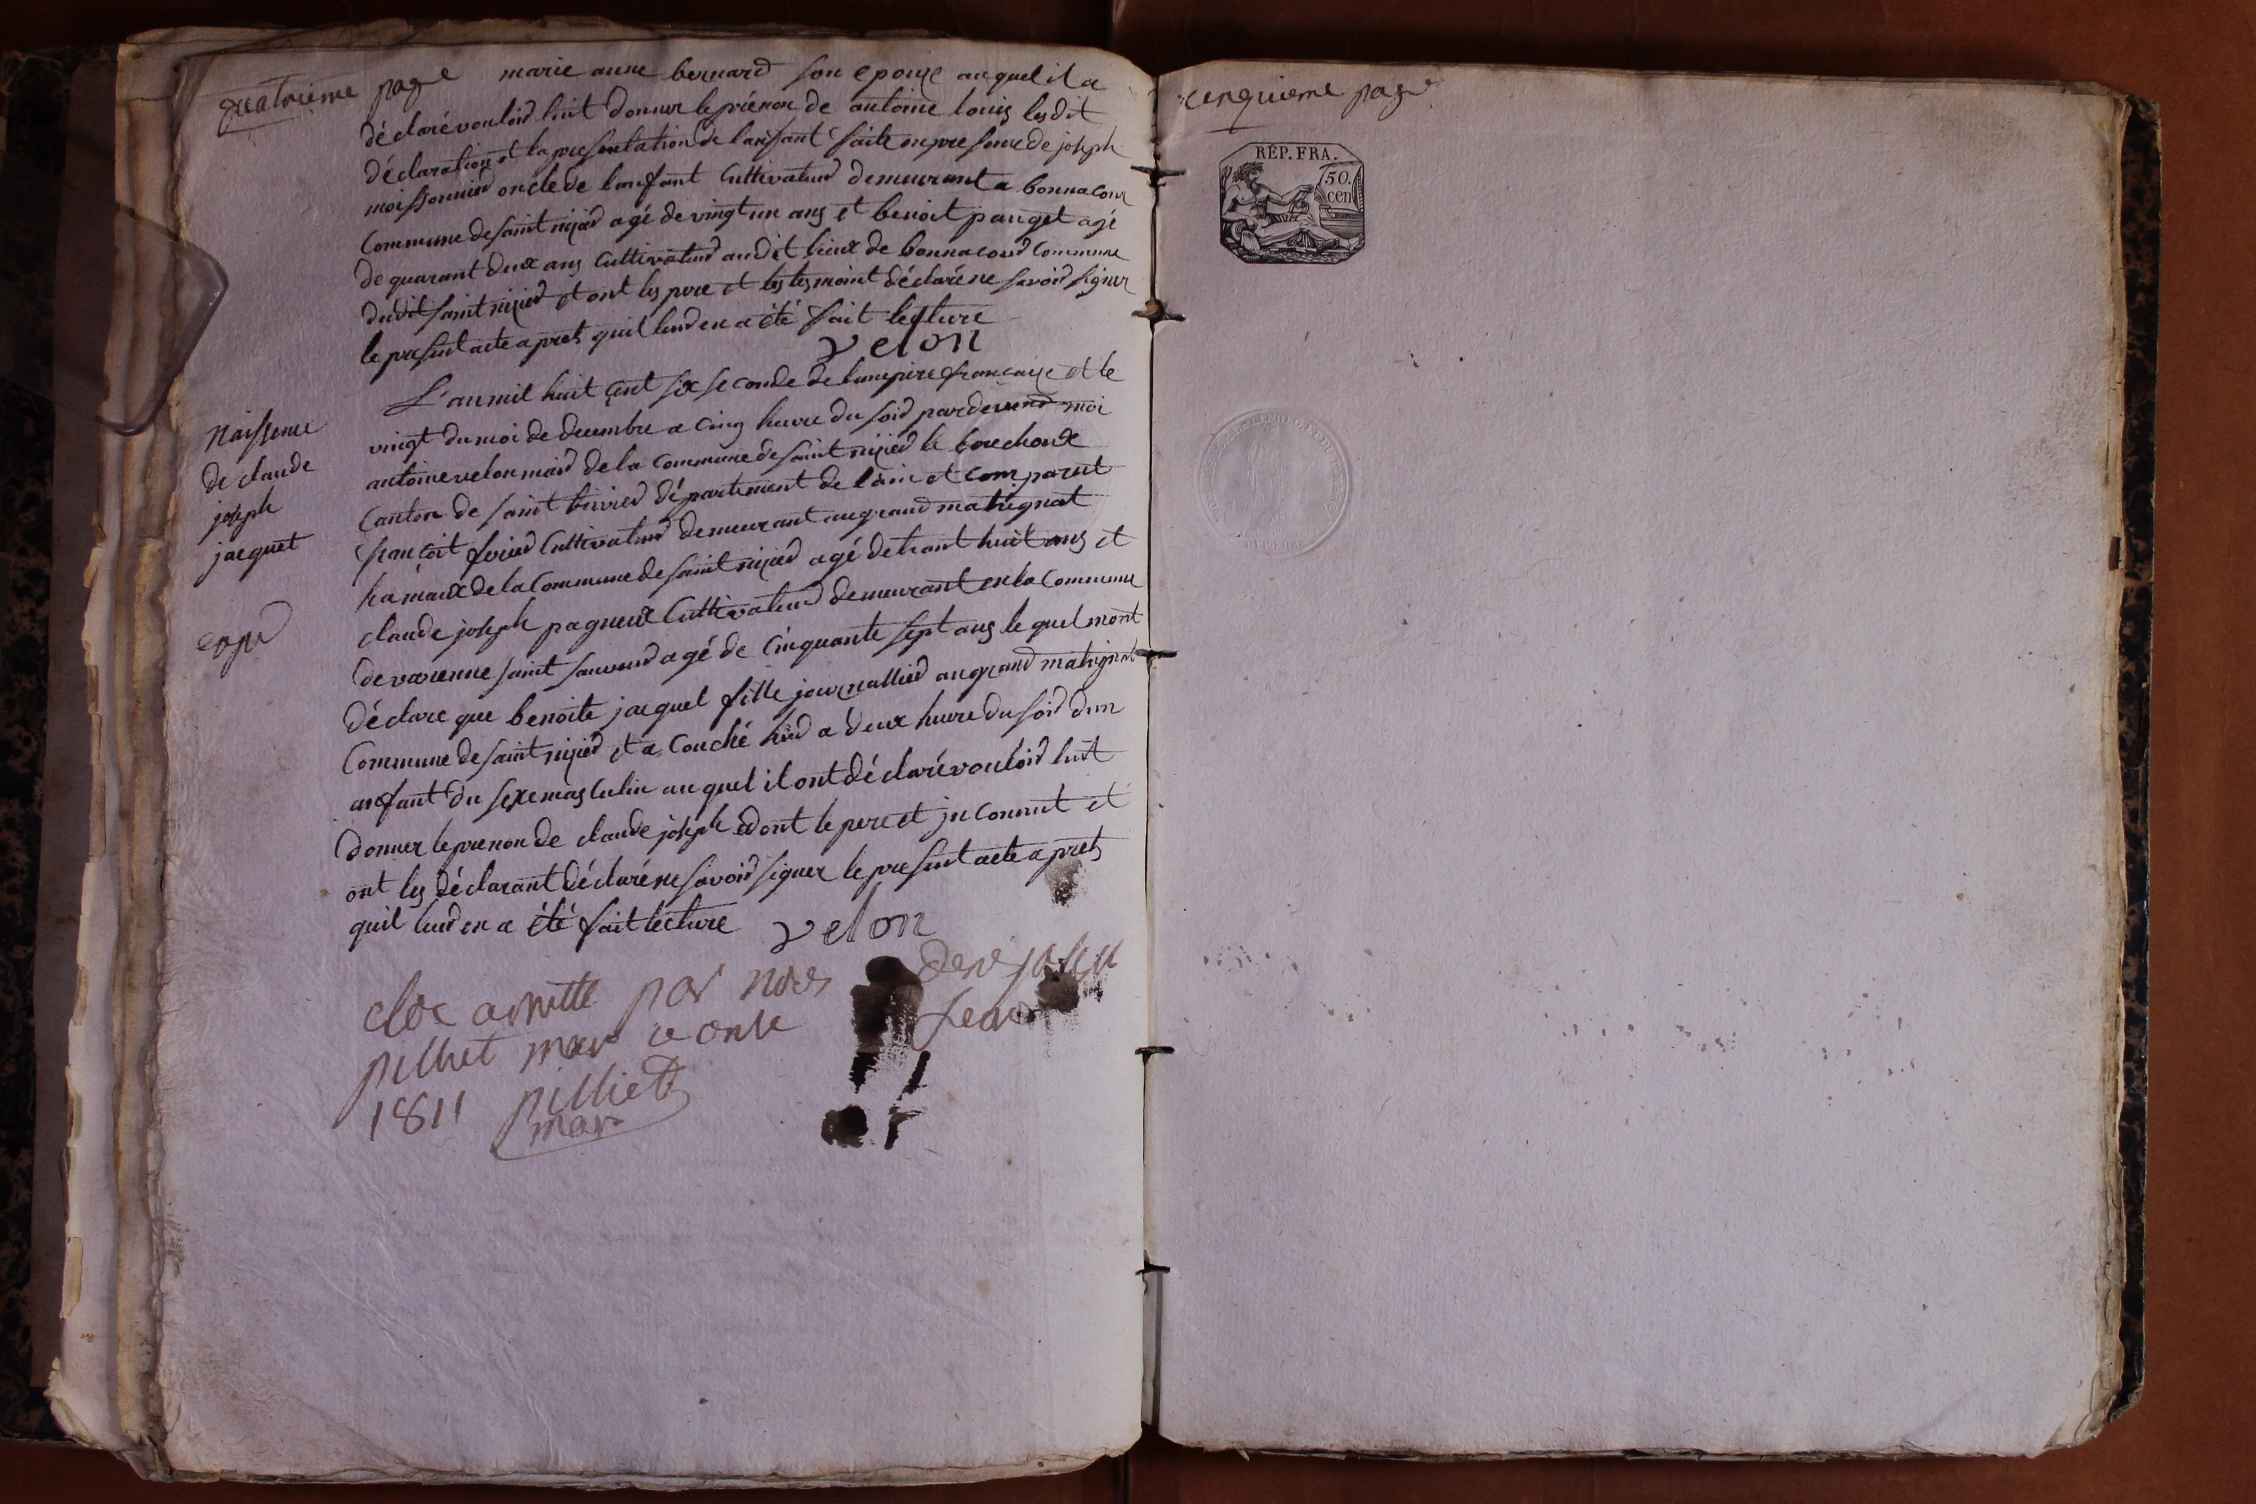 quatrieme page marie anne bernard son epouze auquel il a
déclaré vouloir luit donner le prénon de antoine louis lesdit
déclaration et la presentation de lanfant faite en presence de joseph
moissonnier oncle de lanfant cultivateur demeurant a bonnacour
commune de saint nizier agé de vingt un ans et benoit pauget agé
de quarant deux ans cultivateur audit lieux de bonnacour commune
dudit saint nizier et ont les pere et les tesmoint déclaré ne savoir signer
le present acte apres quil leur en a été fait lecture
velon
L'an mil huit cent six seconde de lempire francaize et le
vingt du moi de decembre a cinq heure du soir pardevend moi
antoine velon mair de la commune de saint nizier le bouchoux
canton de saint trivier département de lain et comparut
françoit frier cultivateur demeurant au grand matrignat
hamaux de la commune de saint nizier agé de trant huit ans et
claude joseph pagneux cultivateur demeurant en la commune
de varenne saint sauveur agé de cinquante sept ans le quel mont
déclare que benoite jacquet fille journallier au grand matrignat
commune de saint nizier et a couché hier a deux heure du soir dun
anfant du sexe masculin au quel il ont déclaré vouloir luit
donner le prenon de claude joseph dont le pere et inconnut et
ont les déclarant déclaré ne savoir signer le present acte apres
quil leur en a été fait lecture velon
Naissence
de claude
joseph
jacquet
clos arrette par nous
pilliet ce onze
1811 pilliet
cinquieme page
RÉP. FRA.
50.
cen